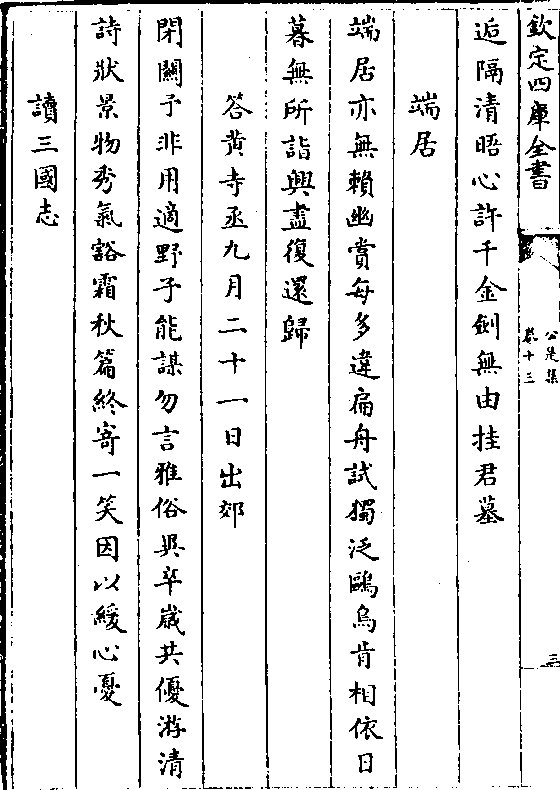 欽定四庫全書
公是集
卷十三
三
逅隔清晤心許千金劍無由挂君墓
端居
端居亦無賴幽賞每多違扁舟試獨泛鷗烏肯相依日
暮無所詣興盡復還歸
答黄寺丞九月二十一日出郊
閉關予非用適野子能謀勿言雅俗異卒嵗共優游清
詩狀景物秀氣豁霜秋篇終寄一笑因以緩心憂
讀三國志